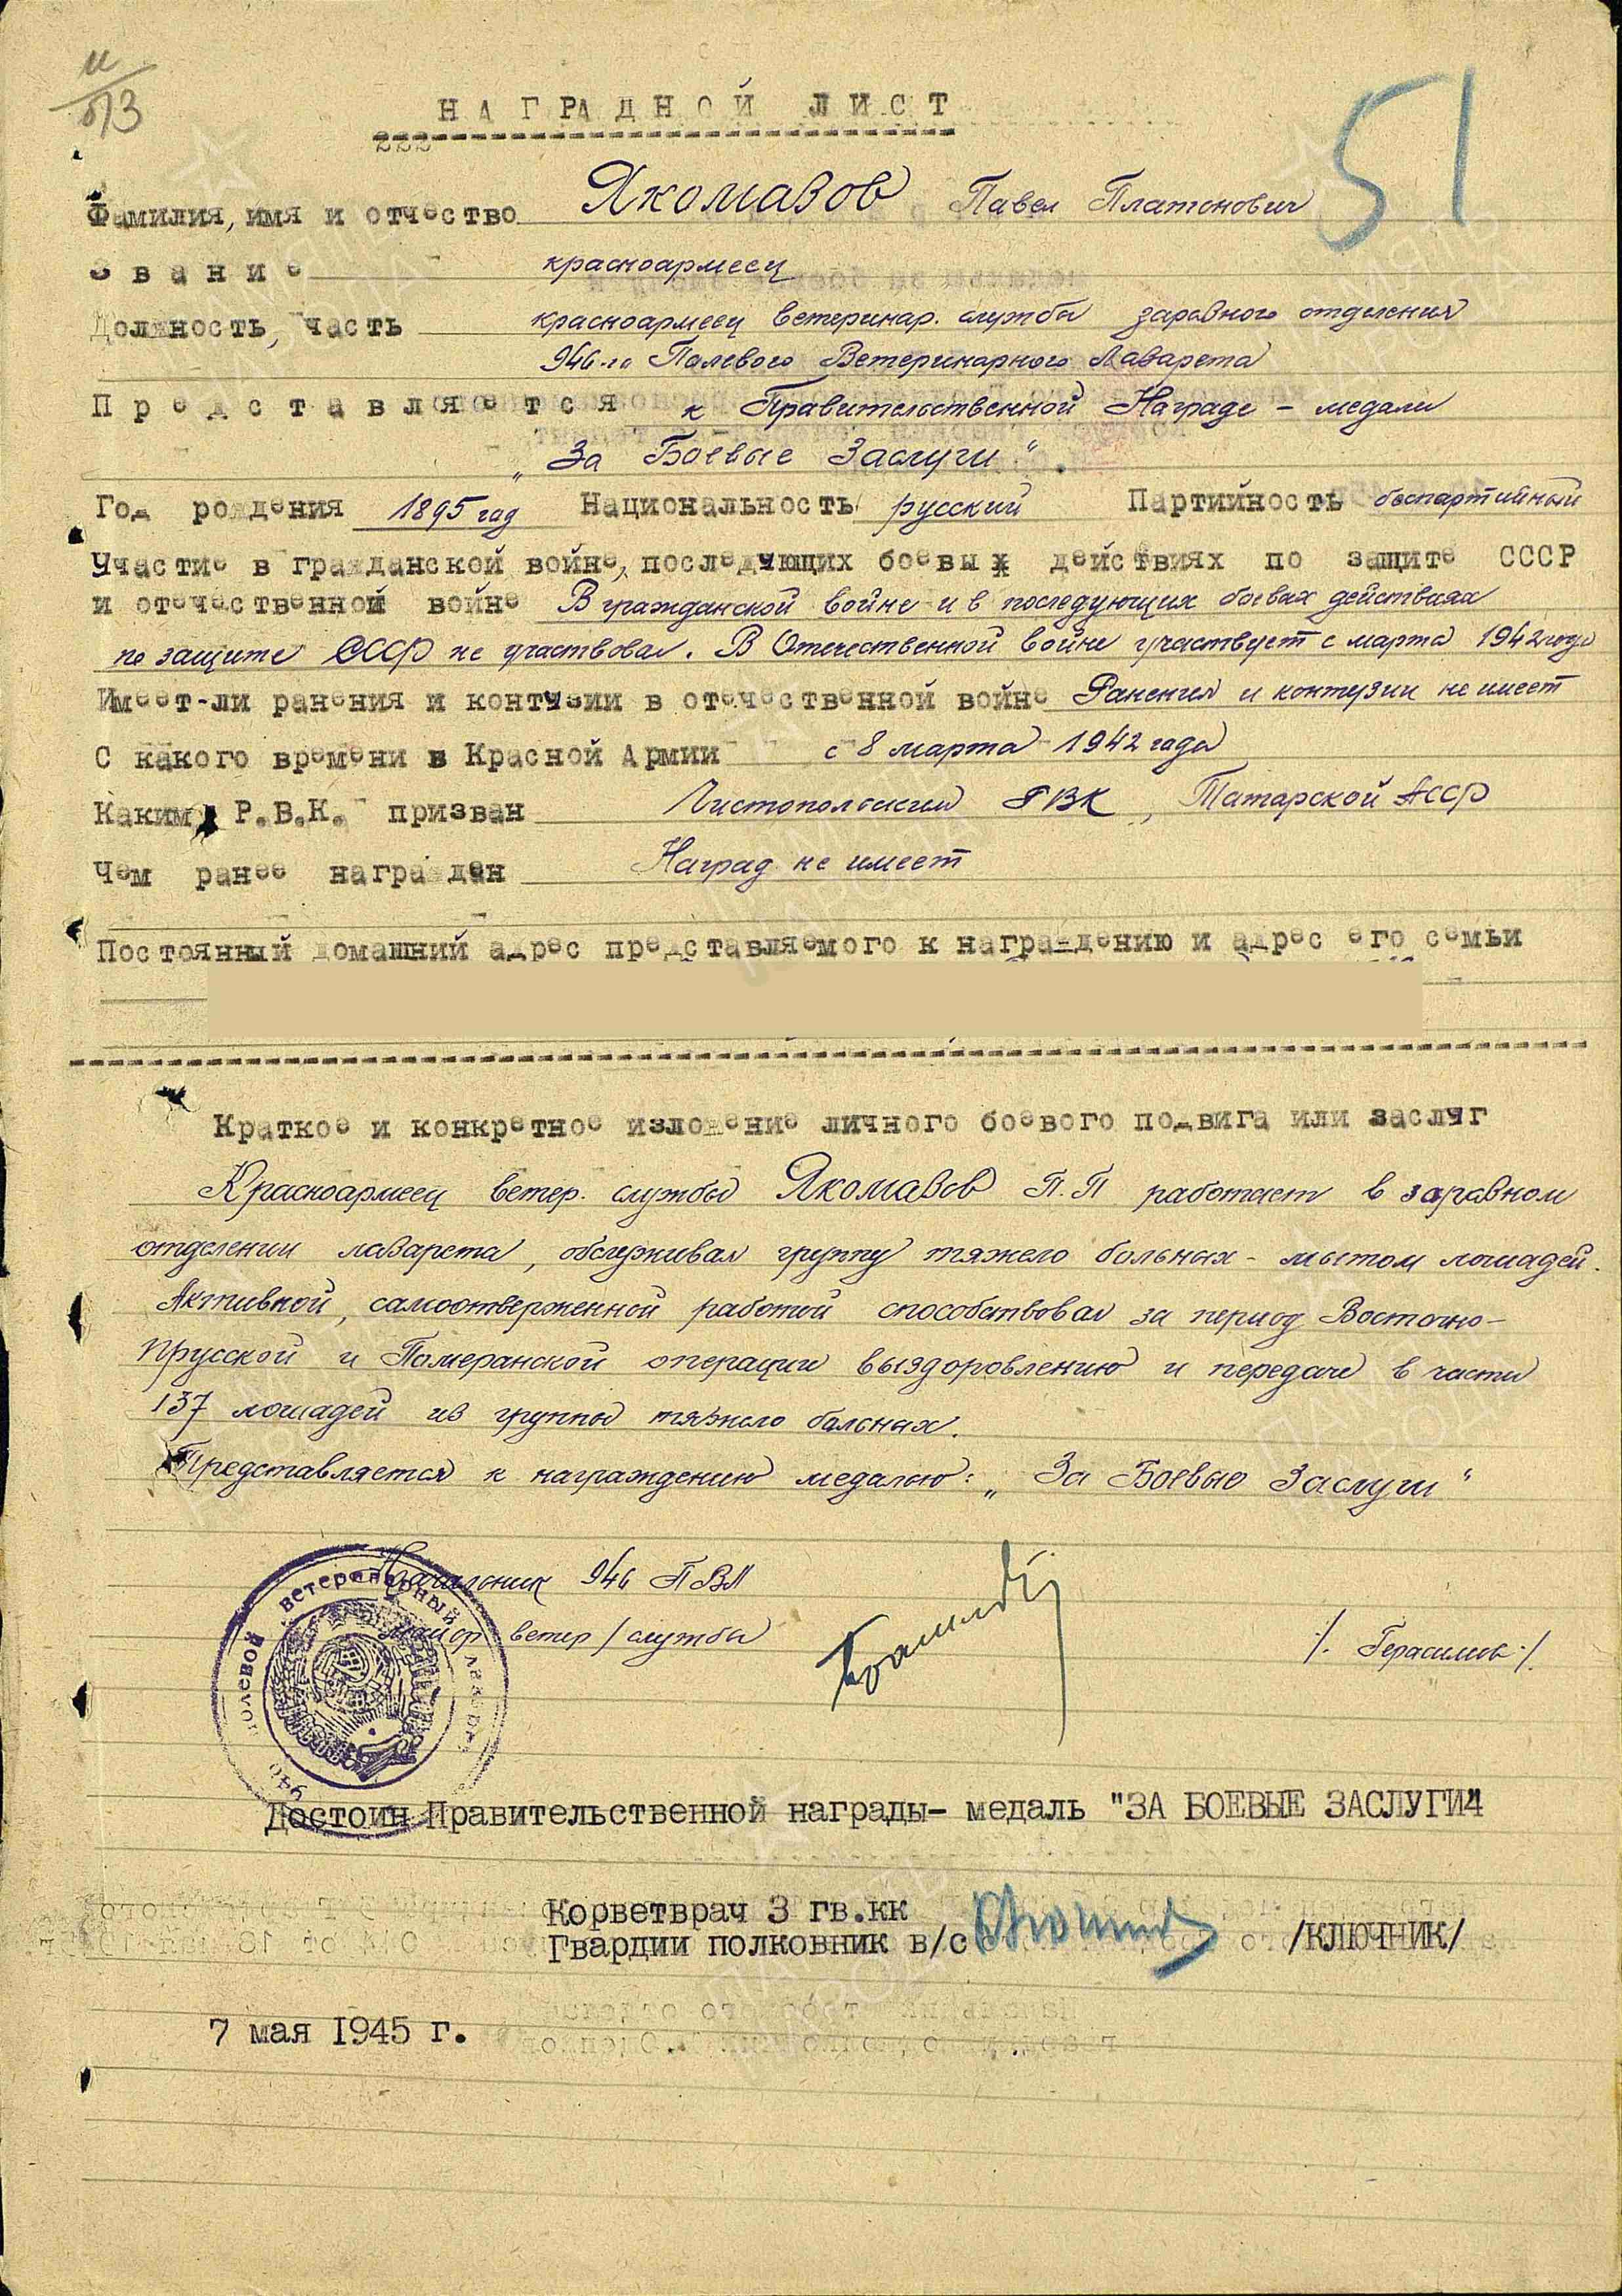 и/573
51
НАГРАДНОЙ ЛИСТ
Фамилия, имя и отчество Якомазов Павел Платонович
Звание красноармеец
Должность, часть красноармеец ветеринар. службы заразного отделения
946-го Полевого Ветеринарного Лазарета
Представляется к Правительственной Награде - медали
„За Боевые Заслуги".
Год рождения 1895 год Национальность русский Партийность беспартийный
Участие в гражданской войне, последующих боевых действиях по защите СССР
и отечественной войне В гражданской войне и в последующих боевых действиях
по защите СССР не участвовал. В Отечественной войне участвует с марта 1942 года
Имеет-ли ранения и контузии в отечественной войне Ранения и контузии не имеет
С какого времени в Красной Армии с 8 марта 1942 года
Каким Р.В.К. призван Чистопольским РВК, Татарской АССР
Чем ранее награжден Наград не имеет
Постоянный домашний адрес представляемого к награждению и адрес его семьи
Краткое и конкретное изложение личного боевого подвига или заслуг
Красноармеец ветер. службы Якомазов П.П работает в заразном
отделении лазарета, обслуживал группу тяжело больных - мытом лошадей.
Активной, самоотверженной работой способствовал за период Восточно-
Прусской и Померанской операции выздоровлению и передаче в части
137 лошадей из группы тяжело больных.
Представляется к награждению медалью: „За Боевые Заслуги"
Начальник 946 ПВЛ
майор ветер/службы /. Герасимов ./.
946 полевой ветеринарный лазарет
Достоин Правительственной награды- медаль "ЗА БОЕВЫЕ ЗАСЛУГИ4
Корветврач 3 гв.кк
Гвардии полковник в/с /КЛЮЧНИК/
7 мая 1945 г.